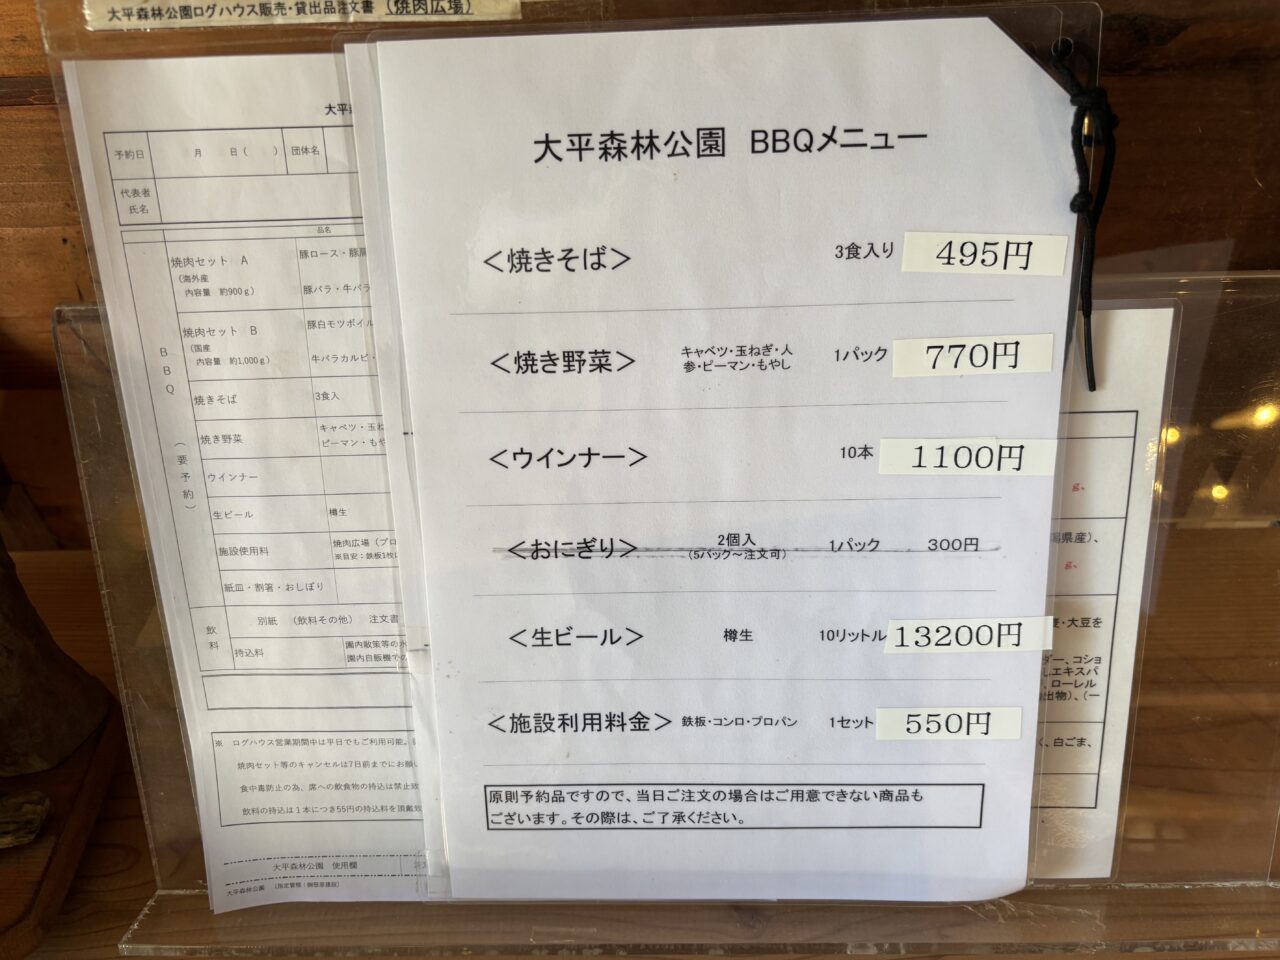 大平森林公園ログハウス販売・貸出品注文書 (焼肉広場)
大平森林公園 BBQメニュー
＜焼きそば＞ 3食入り 495円
＜焼き野菜＞ キャベツ・玉ねぎ・人参・ピーマン・もやし 1パック 770円
＜ウインナー＞ 10本 1100円
＜おにぎり＞ 2個入 (5パック～注文可) 1パック 300円
＜生ビール＞ 樽生 10リットル 13200円
＜施設利用料金＞ 鉄板・コンロ・プロパン 1セット 550円
原則予約品ですので、当日ご注文の場合はご用意できない商品も
ございます。その際は、ご了承ください。
予約日 月 日( ) 団体名
代表者
氏名
品名
BBQ (要予約)
焼肉セット A
(海外産
内容量 約900g)
豚ロース・豚肩
豚バラ・牛バラ
焼肉セット B
(国産
内容量 約1,000g)
豚白モツボイル
牛バラカルビ・
焼きそば 3食入
焼き野菜 キャベツ・玉ね
ピーマン・もや
ウインナー
生ビール 樽生
施設使用料 焼肉広場(プロ
※目安：鉄板1枚に
紙皿・割箸・おしぼり
飲料
別紙 (飲料その他) 注文書
持込料 園内散策等の水
園内自販機での
※ ログハウス営業期間中は平日でもご利用可能。
焼肉セット等のキャンセルは7日前までにお願い
食中毒防止の為、席への飲食物の持込は禁止致
飲料の持込は1本につき55円の持込料を頂戴致
大平森林公園 使用欄
大平森林公園
g、
県産)、
g、
・大豆を
ダー、コショ
エキスパ
、ローレル
出物)、(一
、白ごま、